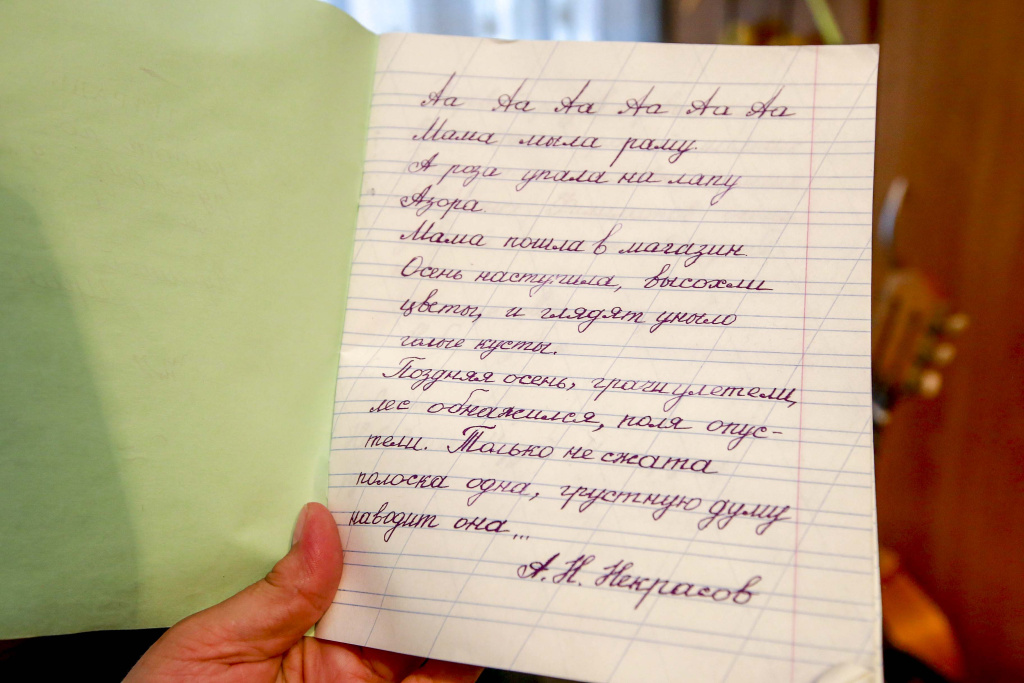 Аа Аа Аа Аа Аа Аа
Мама мыла раму.
А роза упала на лапу
Азора.
Мама пошла в магазин.
Осень наступила, высохли
цветы, и глядят уныло
голые кусты.
Поздняя осень, грачи улетели,
лес обнажился, поля опус-
тели. Только не сжата
полоска одна, грустную думу
наводит она...
А.Н. Некрасов